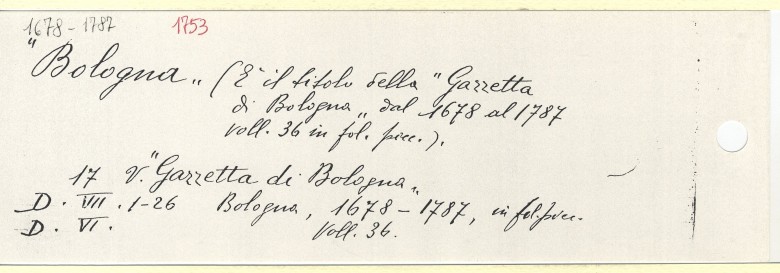 1678-1787 1753
"Bologna" (È il titolo della "Gazzetta
di Bologna" dal 1678 al 1787
voll. 36 in fol. picc.).
17 V. "Gazzetta di Bologna"
D. VIII. 1-26 Bologna, 1678-1787, in fol. picc.
D. VI. Voll. 36.